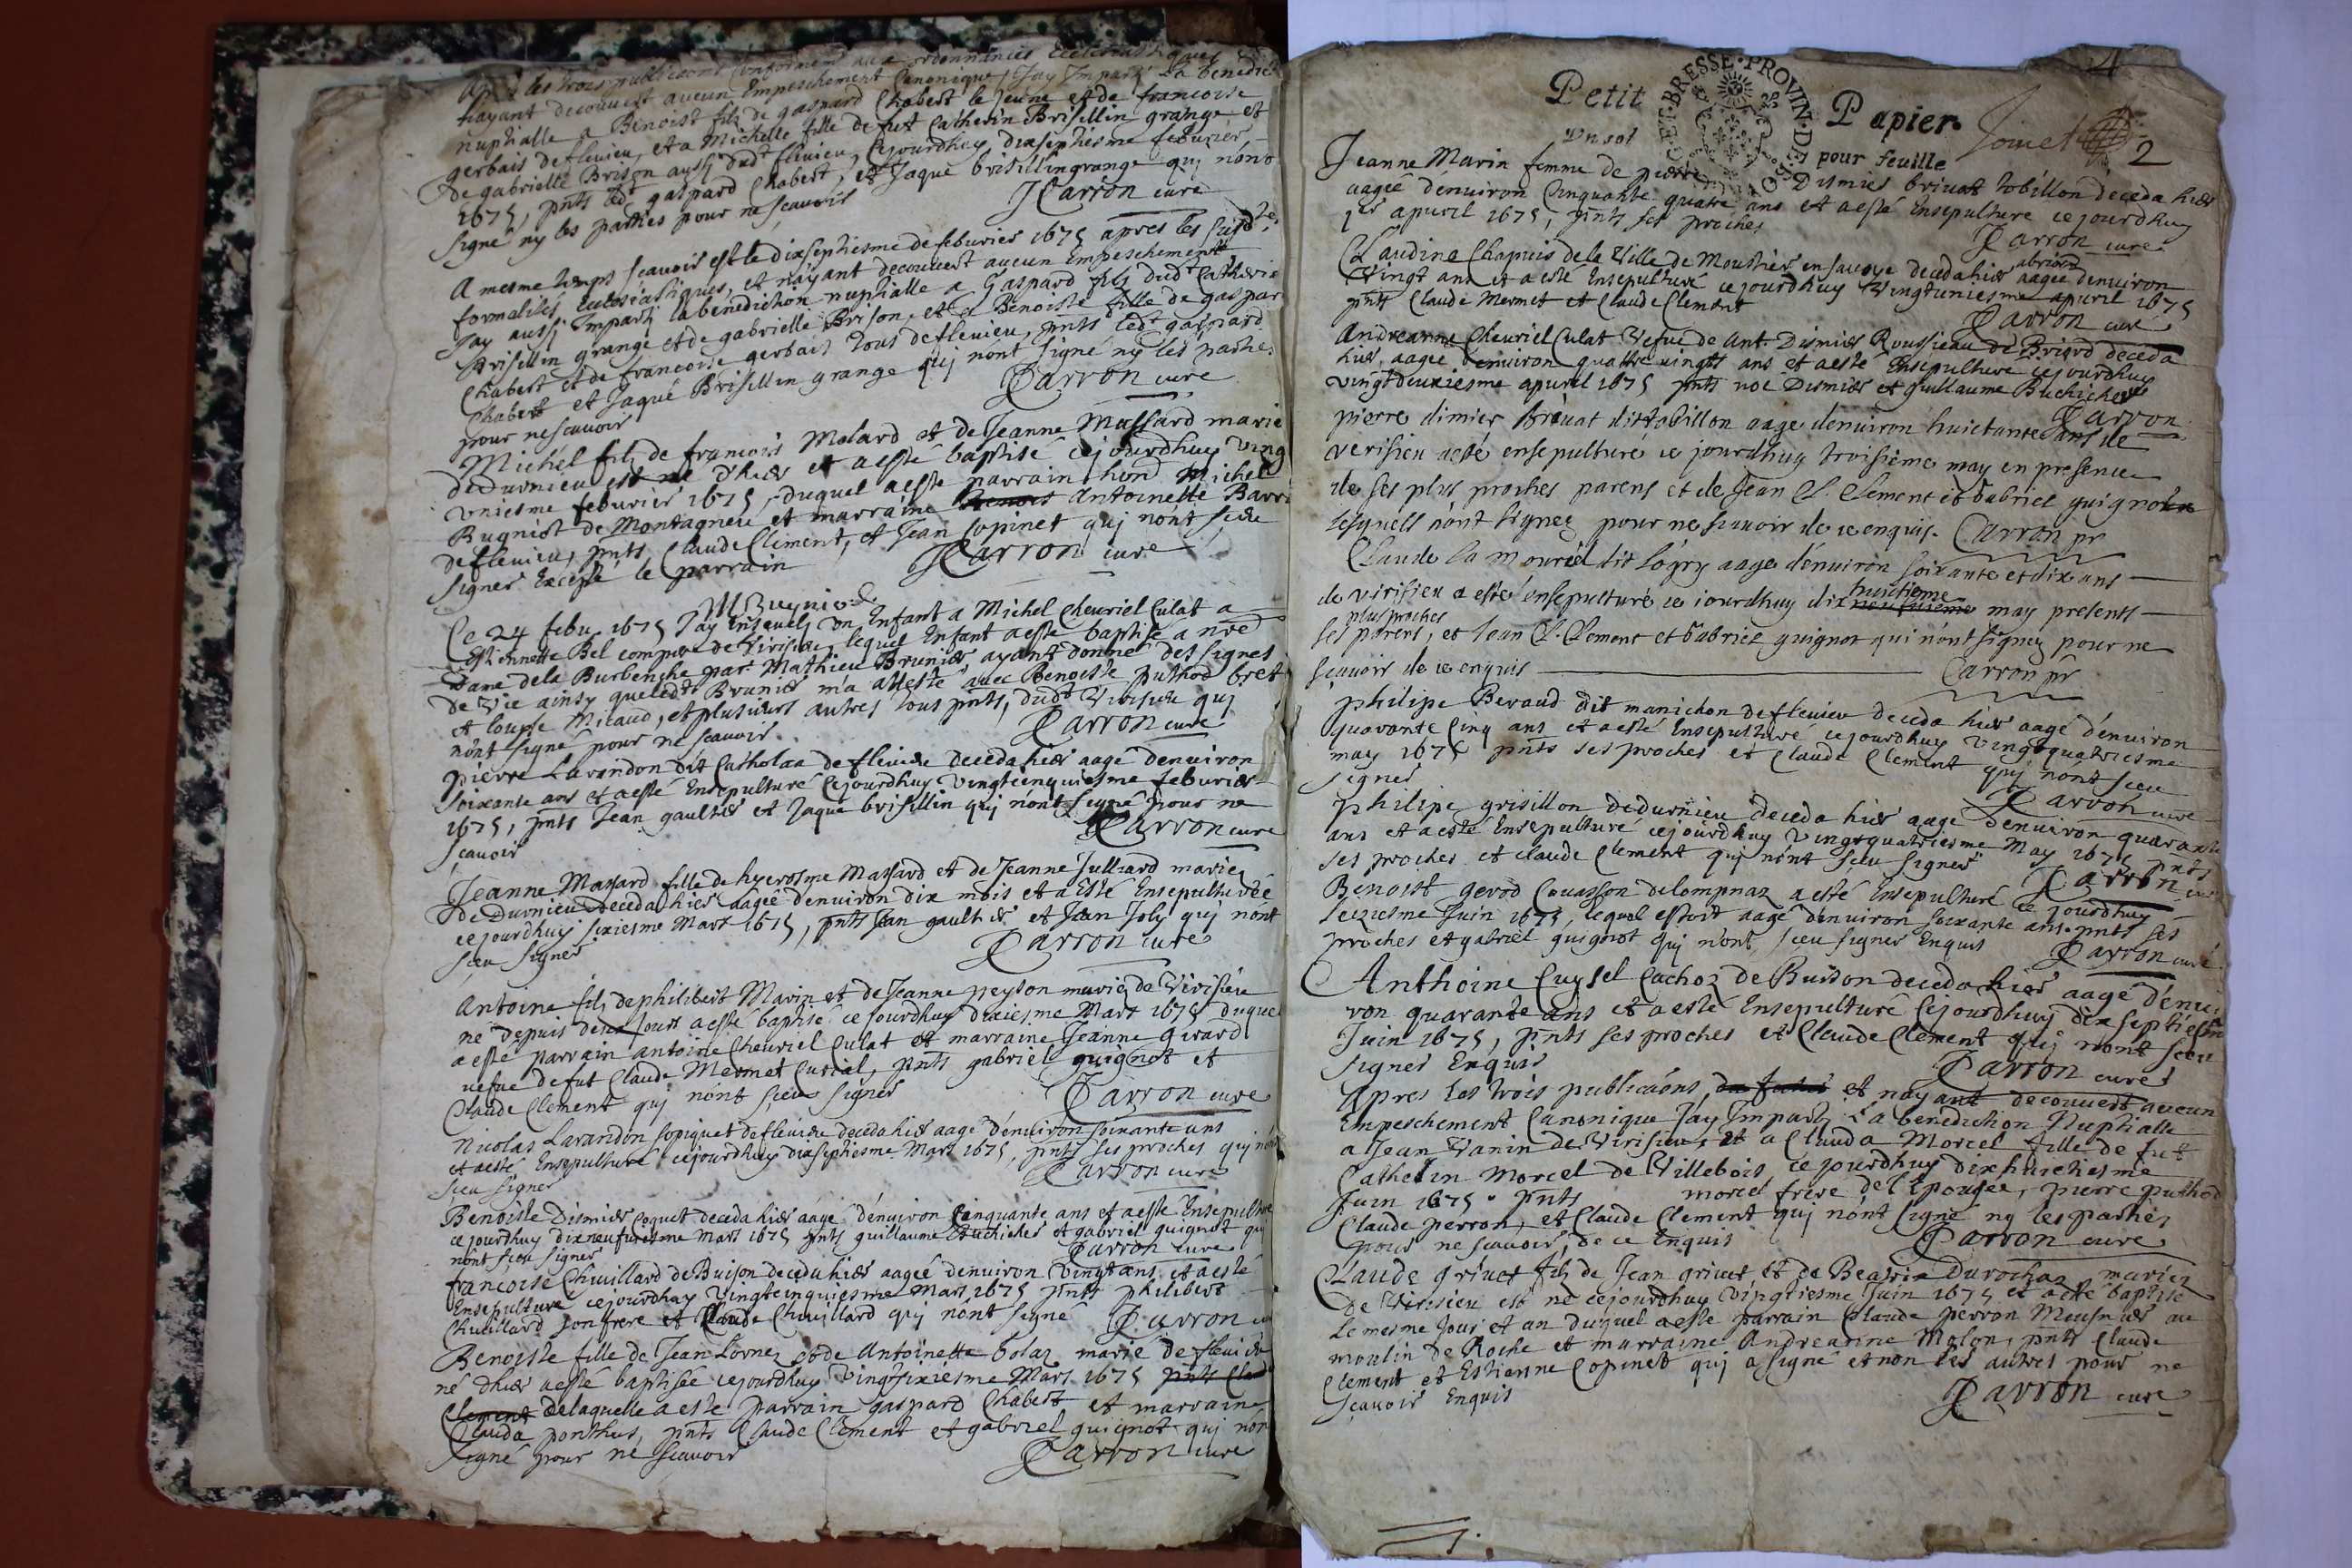 Apres les trois publicaons conformem aux ordonnances Ecclesiastiques
nayant decouvert aucun Empeschement Canonique, Jay Imparti La benedict
nuptialle a Benoist fils de gaspard Chabert le Jeune et de francoise
gerbais de flevieu, et a Michelle fille de fut Catherin Brisillin grange et
de gabrielle Brison aussi dudt flevieu, Cejourdhuy dixseptiesme febvrier
1675, pnts led gaspard Chabert, et Jaque brisillin grange quj nono
signé ny les parties pour ne scavoir
JCarron curé
A mesme temps scavoir est le dixseptiesme de febvrier 1675 apres les susdtes
formalités Eclesiastiques, et nayant decouvert aucun Empeschement
Jay aussi Imparti la benediction nuptialle a Gaspard fils dudt Catherin
Brisillin grange et de gabrielle Brison, et a Benoiste fille de gaspar
Chabert et de francoise gerbais tous de flevieu, pnts ledt gaspard
Chabert et Jaque Brisillin grange quj nont signé ny les parties
pour ne scavoir
JCarron curé
Michel fils de francois Molard et de Jeanne Massard marié
de Durnieu est né d'hier et a esté baptisé cejourdhuy ving
vniesme febvrier 1675, duquel a esté parrain hon Michel
Bugniot de Montagnieu et marraine Benoist Antoinette Barr
de flevieu, pnts Claude Clement, et Jean Copinet quj nont sceu
signer Excepté le parrain
JCarron curé
M Bugniod
Ce 24 febv. 1675 Jay Ensevely Un Enfant a Michel Chevriel Culat a
Estiennette Bel compere de Virisieu, lequel Enfant a esté baptisé a nre
Dame de la Burbenche par Mathieu Brunier, ayant donné des signes
de vie ainsy que ledt Brunier m'a attesté avec Benoiste Puthod bret
et loupse Micaud, et plusieurs autres tous pnts, dudt Virisieu quj
nont signé pour ne scavoir.
JCarron curé
pierre Lavandon dit Catholaa de flevieu deceda hier aagé denviron
soixante ans et a esté Ensepulturé Cejourdhuy vingtcinquiesme febvrier
1675, pnts Jean gaultier et Jaque brisillin quj nont signé pour ne
scavoir
JCarron curé
Jeanne Massard fille de hyerosme Massard et de Jeanne Julliard mariez
de Durnieu deceda hier aagée denviron dix mois et a esté Ensepulturée
cejourdhuy sixiesme Mars 1675, pnts Jean gaultier et Jean Joly quj nont
sceu signer
JCarron curé
Antoine fils de philibert Marin et de Jeanne peyson mariez de Virisieu
né depuis deux Jours a esté baptisé ce Jourdhuy dixiesme Mars 1675 duquel
a esté parrain antoine Chevriel Culat et marraine Jeanne girard
vefve de fut Claude Mermet Curial, pnts gabriel guignot et
Claude Clement quj nont sceu signer
JCarron curé
Nicolas Lavandon sopiquet de flevieu deceda hier aagé d'environ soixante ans
et a esté Ensepulturé cejourdhuy dixseptiesme Mars 1675, pnts ses proches quj nont
sceu signer
JCarron curé
Benoiste Dismier Coquet deceda hier aagé d'environ Cinquante ans et a esté Ensepulturé
cejourdhuy dixneufviesme Mars 1675 pnts guillaume Buchicher et gabriel guignot quj
nont sceu signer
JCarron curé
francoise Chevillard de Buison deceda hier aageé denviron Vingt ans, et a esté
Ensepulturé cejourdhuy Vingtcinquiesme Mars 1675 pnts philibert
Chevillard son frere et Claude Chevillard quj nont signé
JCarron cu
Benoiste fille de Jean Lornez et de Antoinette Golaz marié de flevieu
né dhier a esté baptisée cejourdhuy Vingtsixiesme Mars 1675 pnts Claude
Clement delaquelle a esté parrain gaspard Chabert et marraine
Clauda ponthus, pnts Claude Clement et gabriel guignot quj non
signé pour ne scavoir
JCarron curé
4
Petit Papier
BRESSE PROVIN
Un sol pour feuille
2
Jeanne Marin femme de pierre Dismier brivat tobillon deceda hier
aageé denviron Cinquante quatre ans et a esté Ensepulture cejourdhuy
1er apvril 1675, pnts ses proches
JCarron curé
Claudine Chapuis de la Ville de Moustier en savoye deceda hier abriord aageé denviron
Vingt ans et a esté Ensepulturé cejourdhuy Vingtuniesme apvril 1675
pnts Claude Mermet et Claude Clement
JCarron curé
Andreanne Chevriel Culat Vefve de Ant. Dismier Roussieau de Briord deceda
hier, aageé denviron quattre vingts ans et a esté Ensepulture cejourdhuy
vingtdeuxiesme apvril 1675 pnts noé Dismier et guillaume Buchicher
JCarron
pierre dimier brevat dit tobillon aagé denviron huictante ans de
verisieu a esté ensepulturé ce jourdhuy troisieme may en presence
de ses plus proches parens et de Jean C. Clement et Gabriel guignot
lesquels n'ont signez pour ne scavoir de ce enquis. Carron pr
Claude la Mouriel dit logry aagé d'environ soixante et dix ans
de virisieu a esté ensepulturé ce iourdhuy dix neufvieme huictieme may presents
ses plus proches parens, et Jean C. Clement et Gabriel guignot qui n'ont signez pour ne
scavoir de ce enquis Carron pr
philipe Beraud dit manichon de flevieu deceda hier aagé d'environ
quarante Cinq ans et a esté Ensepulturé cejourdhuy vingtquatriesme
may 1675 pnts ses proches et Claude Clement quj nont sceu
signer
JCarron curé
philipe grisillon de durnieu deceda hier aagé denviron quarante
ans et a esté Ensepulturé cejourdhuy vingtquatriesme May 1675 pnts
ses proches et claude Clement quj nont sceu signer
JCarron curé
Benoist gerod Couasson de lompnaz a esté Ensepulturé ce jourdhuy
seiziesme Juin 1675, lequel estoit aagé d'environ soixante ans pnts ses
proches et gabriel guignot quj nont sceu signer Enquis
JCarron curé
Anthoine Cuysel Cachoz de Buison deceda hier aagé d'envi
ron quarante ans et a esté Ensepulturé Cejourdhuy dix septiesme
Juin 1675, pnts ses proches et Claude Clement quj nont sceu
signer Enquis
JCarron curé
Apres les trois publicaons, et nayant decouvert aucun
Empeschement Canonique Jay Imparti La benediction Nuptialle
a Jean Vanin de Virisieu, et a Clauda Morcel fille de fut
Cathelin Morcel de Villebois, cejourdhuy dixhuictiesme
Juin 1675. pnts morcel frere de l'Epousée, pierre puthod
Claude perron, et Claude Clement quj nont signé ny les parties
pour ne scavoir, de ce Enquis
JCarron curé
Claude grivet fils de Jean grivet et de Beatrix Durochaz mariez
de Virisieu est né cejourdhuy vingtiesme Juin 1675 et a esté baptisé
le mesme Jour et an duquel a esté parrain Claude perron Meusnier au
moulin de Roche et marraine Andreanne Molon, pnts Claude
Clement et Estienne Copinet quj a signé et non les autres pour ne
scavoir Enquis
JCarron curé